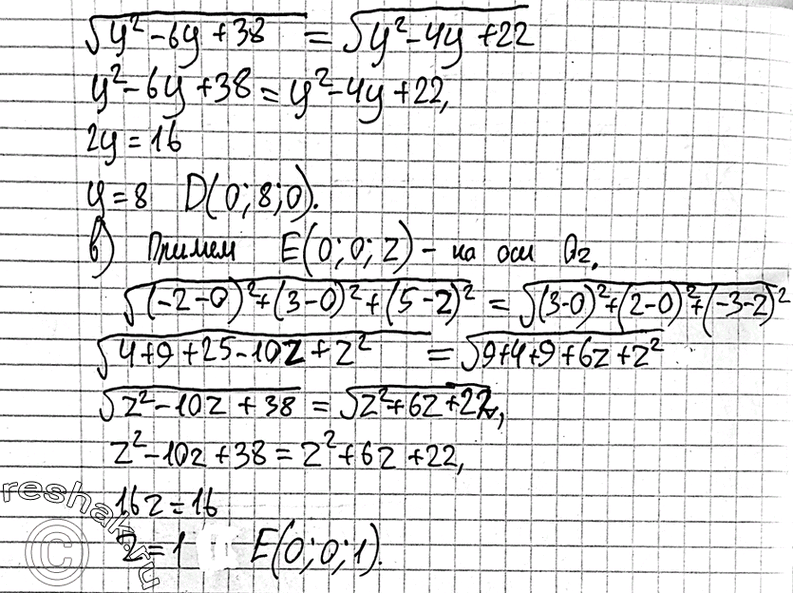 √(y²-6y+38) = √(y²-4y+22)
y²-6y+38 = y²-4y+22,
2y = 16
y = 8 D(0;8;0).
в) Примем E(0;0;z) - на оси Oz.
√((-2-0)²+(3-0)²+(5-z)²) = √((3-0)²+(2-0)²+(-3-z)²)
√(4+9+25-10z+z²) = √(9+4+9+6z+z²)
√(z²-10z+38) = √(z²+6z+22),
z²-10z+38 = z²+6z+22,
16z = 16
z = 1 E(0;0;1).
reshak.ru
©